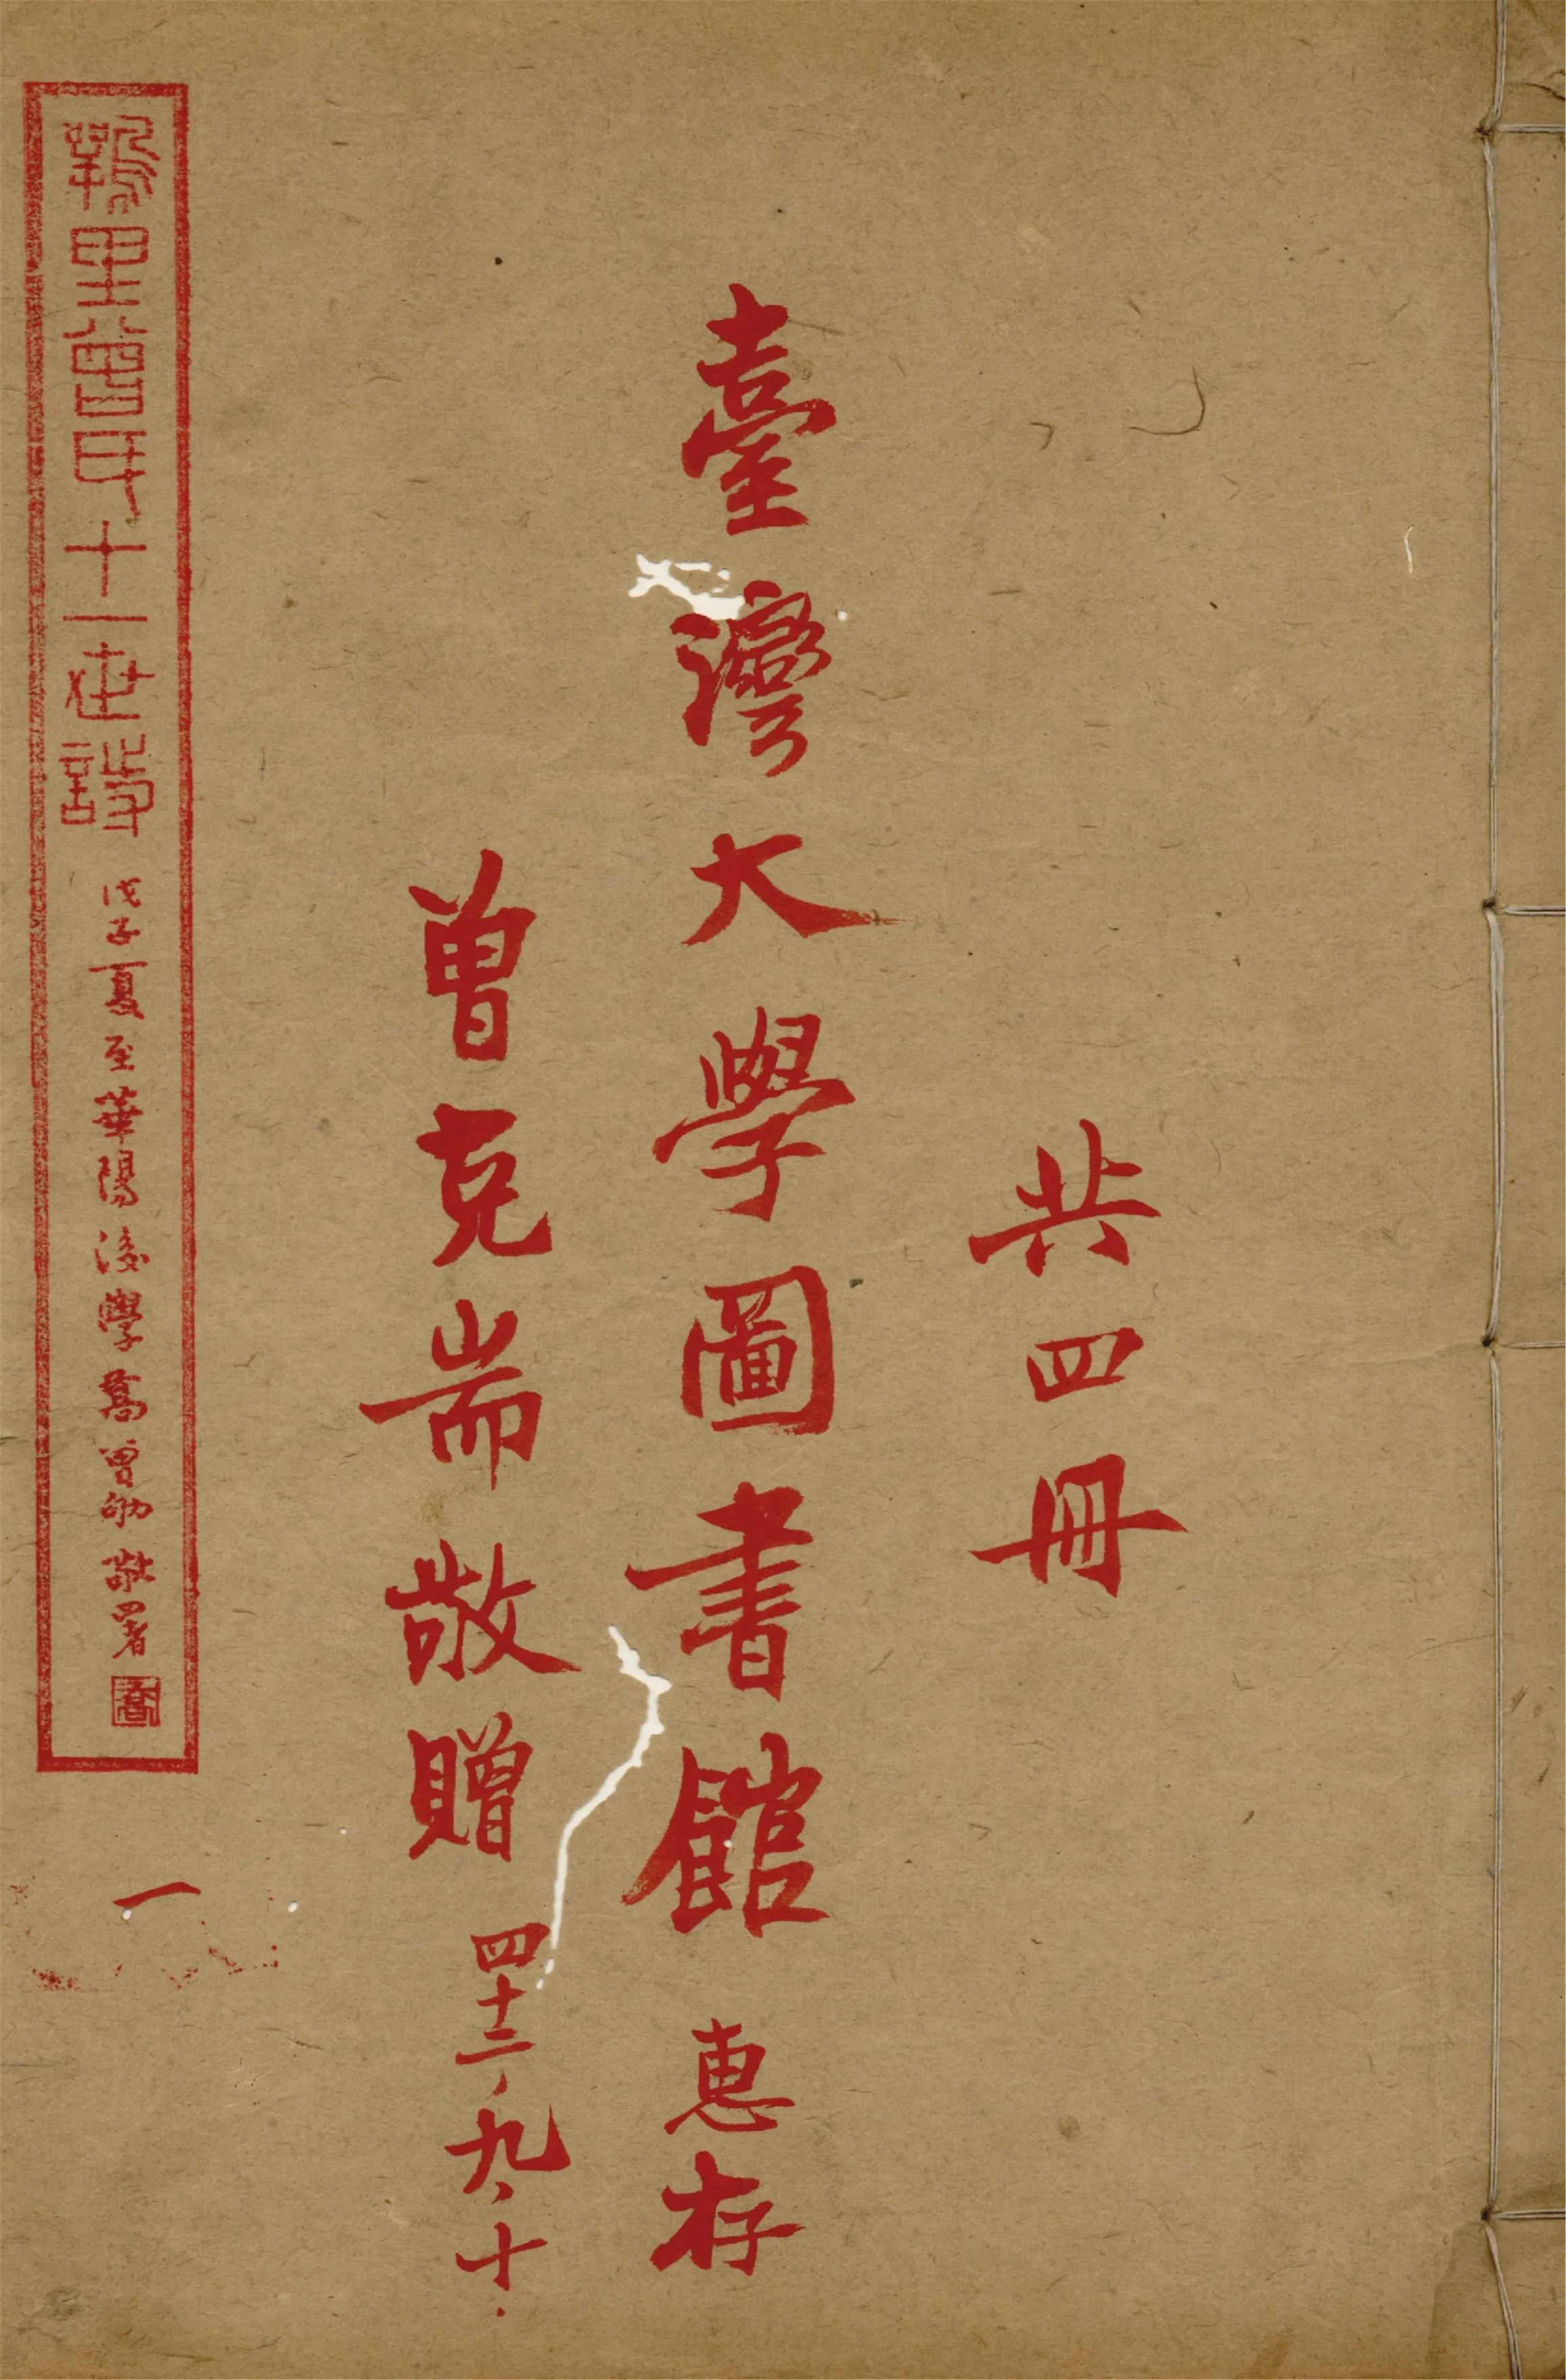 共四冊
臺灣大學圖書館 惠存
曾克耑敬贈 四十二、九、十.
翔里曾氏十一世詩 戊子夏至華陽後學喬曾劬敬署 喬
一